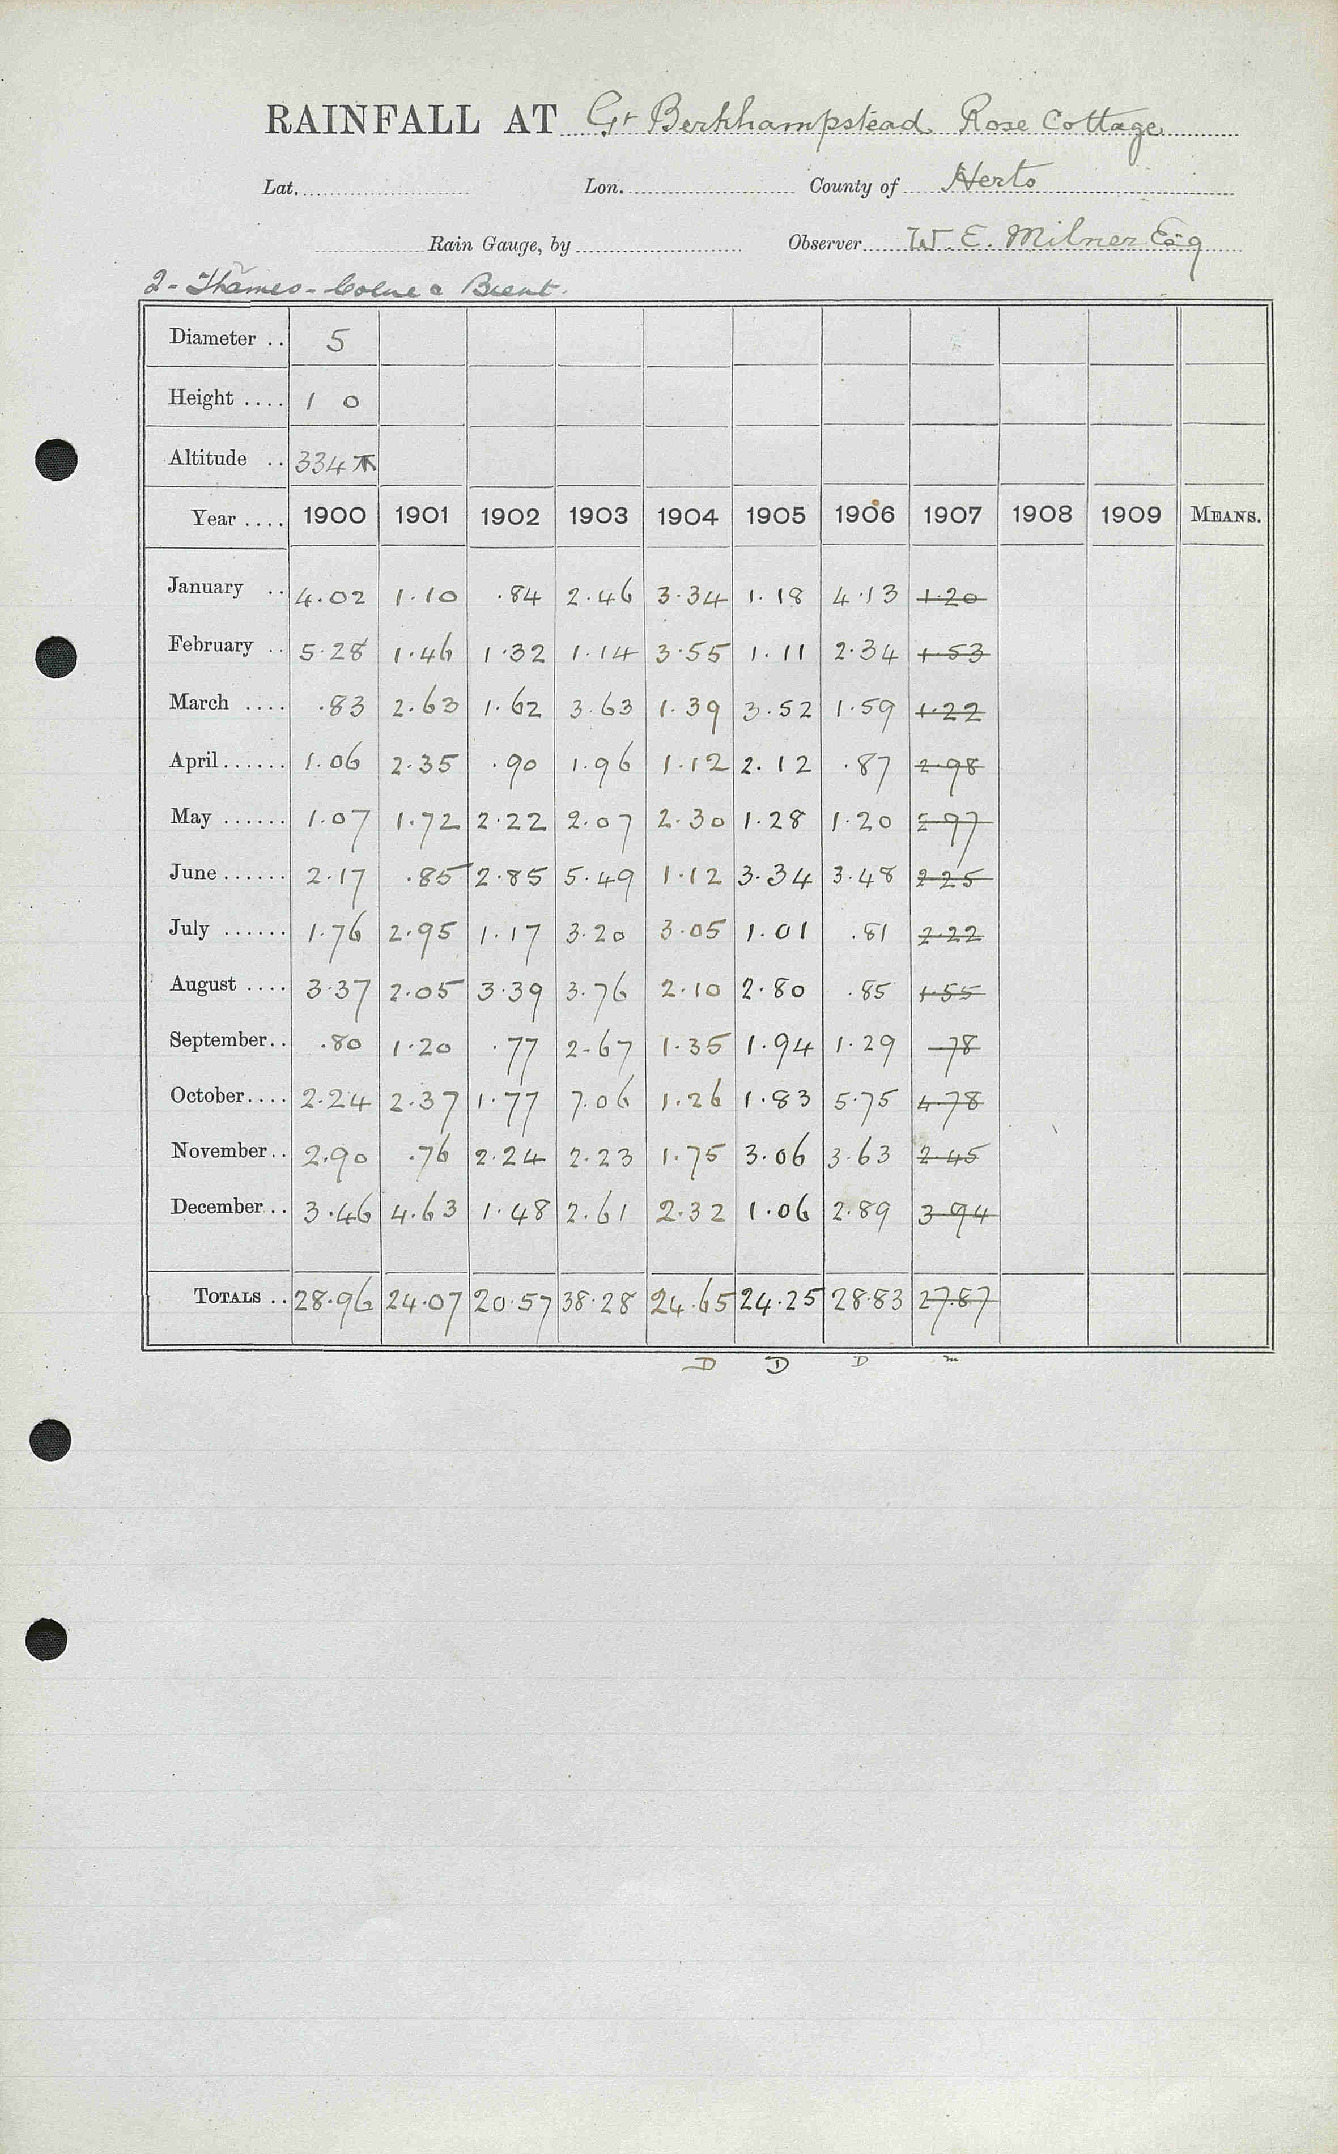 RAINFALL AT Gt Berkhampstead Rose Cottage
Lat. Lon. County of Herts
Rain Gauge, by Observer W. E. Milner Esq
2 - Thames - Colne & Brent.
Diameter .. 5
Height .... 1 0
Altitude .. 334
Year .... 1900 1901 1902 1903 1904 1905 1906 1907 1908 1909 MEANS.
January .. 4.02 1.10 .84 2.46 3.34 1.18 4.13 1.20
February .. 5.28 1.46 1.32 1.14 3.55 1.11 2.34 1.53
March .... .83 2.63 1.62 3.63 1.39 3.52 1.59 1.22
April ...... 1.06 2.35 .90 1.96 1.12 2.12 .87 2.98
May ...... 1.07 1.72 2.22 2.07 2.30 1.28 1.20 2.97
June ...... 2.17 .85 2.85 5.49 1.12 3.34 3.48 2.25
July ...... 1.76 2.95 1.17 3.20 3.05 1.01 .81 2.22
August .... 3.37 2.05 3.39 3.76 2.10 2.80 .85 1.55
September .. .80 1.20 .77 2.67 1.35 1.94 1.29 .78
October .... 2.24 2.37 1.77 7.06 1.26 1.83 5.75 4.78
November .. 2.90 .76 2.24 2.23 1.75 3.06 3.63 2.45
December .. 3.46 4.63 1.48 2.61 2.32 1.06 2.89 3.94
TOTALS .. 28.96 24.07 20.57 38.28 24.65 24.25 28.83 27.87
D D D m